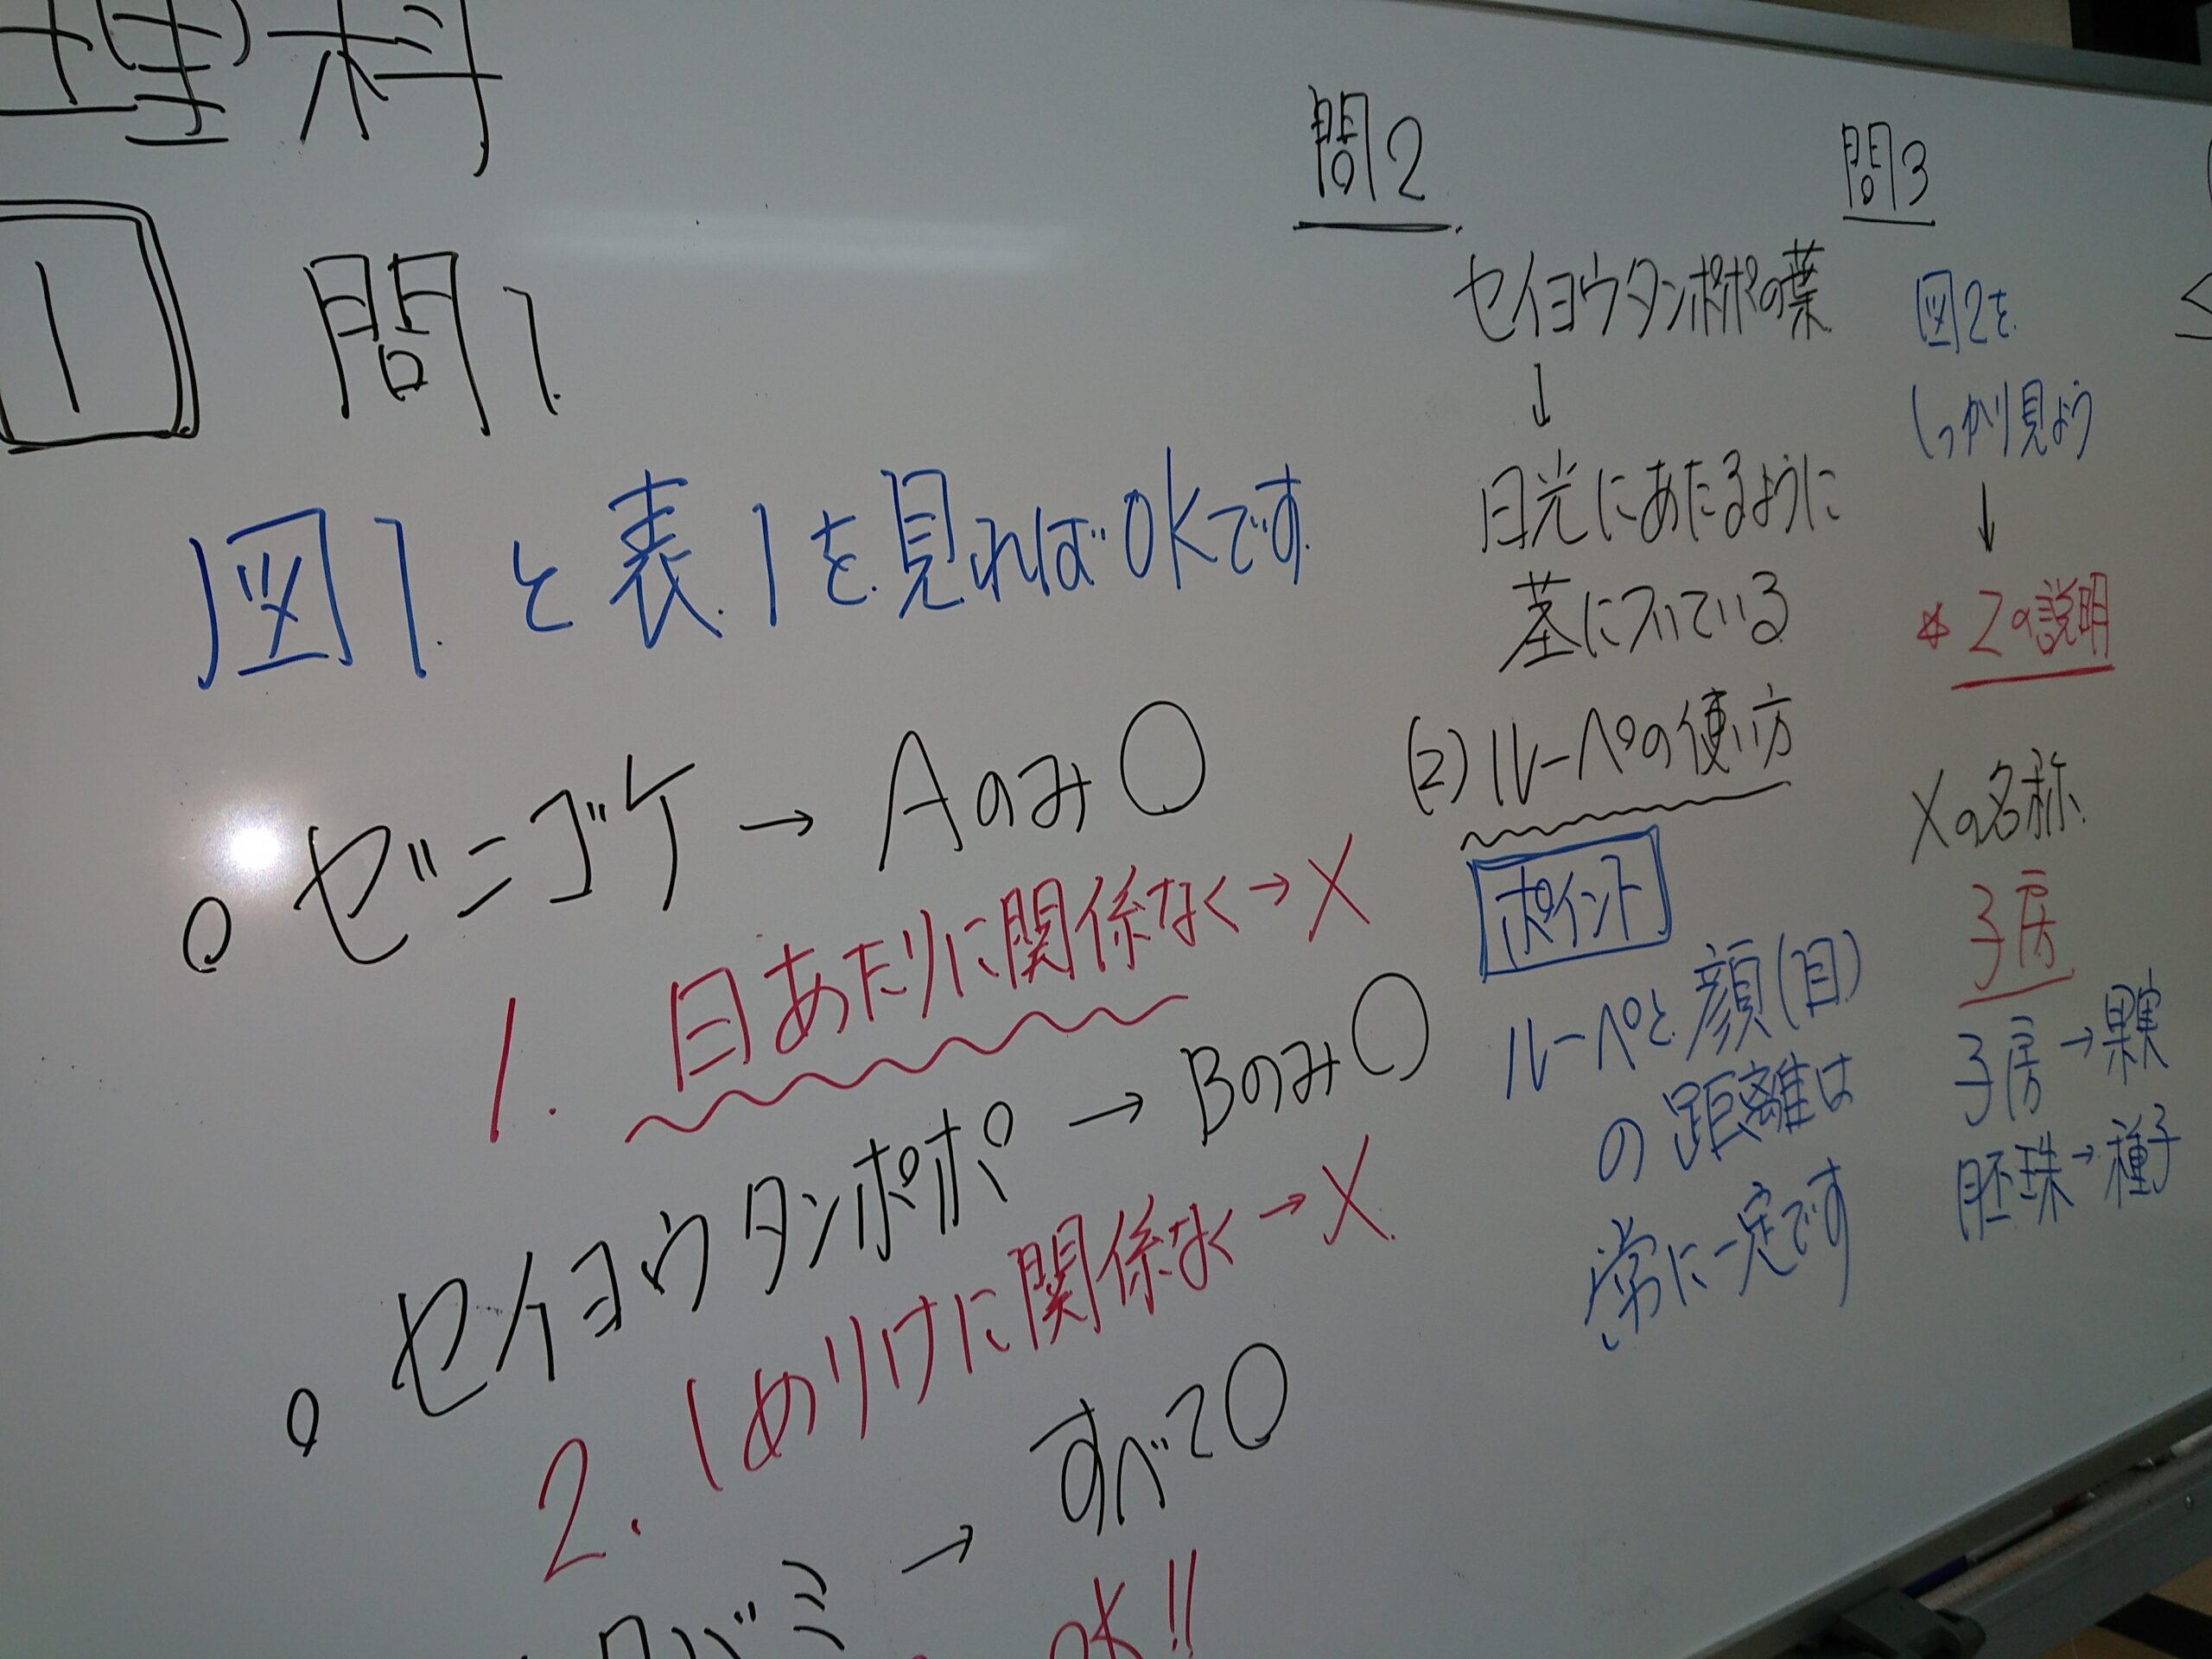 理科
1 問1.
図1.と表1を見ればOKです.
○ゼニゴケ→Aのみ○
1. 日あたりに関係なく→X
○セイヨウタンポポ→Bのみ○
2. しめりけに関係なく→X.
バミ→すべて○
OK!!
問2.
セイヨウタンポポの葉
↓
日光にあたるように
茎についている
(2)ルーペの使い方
ポイント
ルーペと顔(目)
の距離は
常に一定です
問3
図2を
しっかり見よう
↓
Zの説明
Xの名称
子房
子房→果実
胚珠→種子